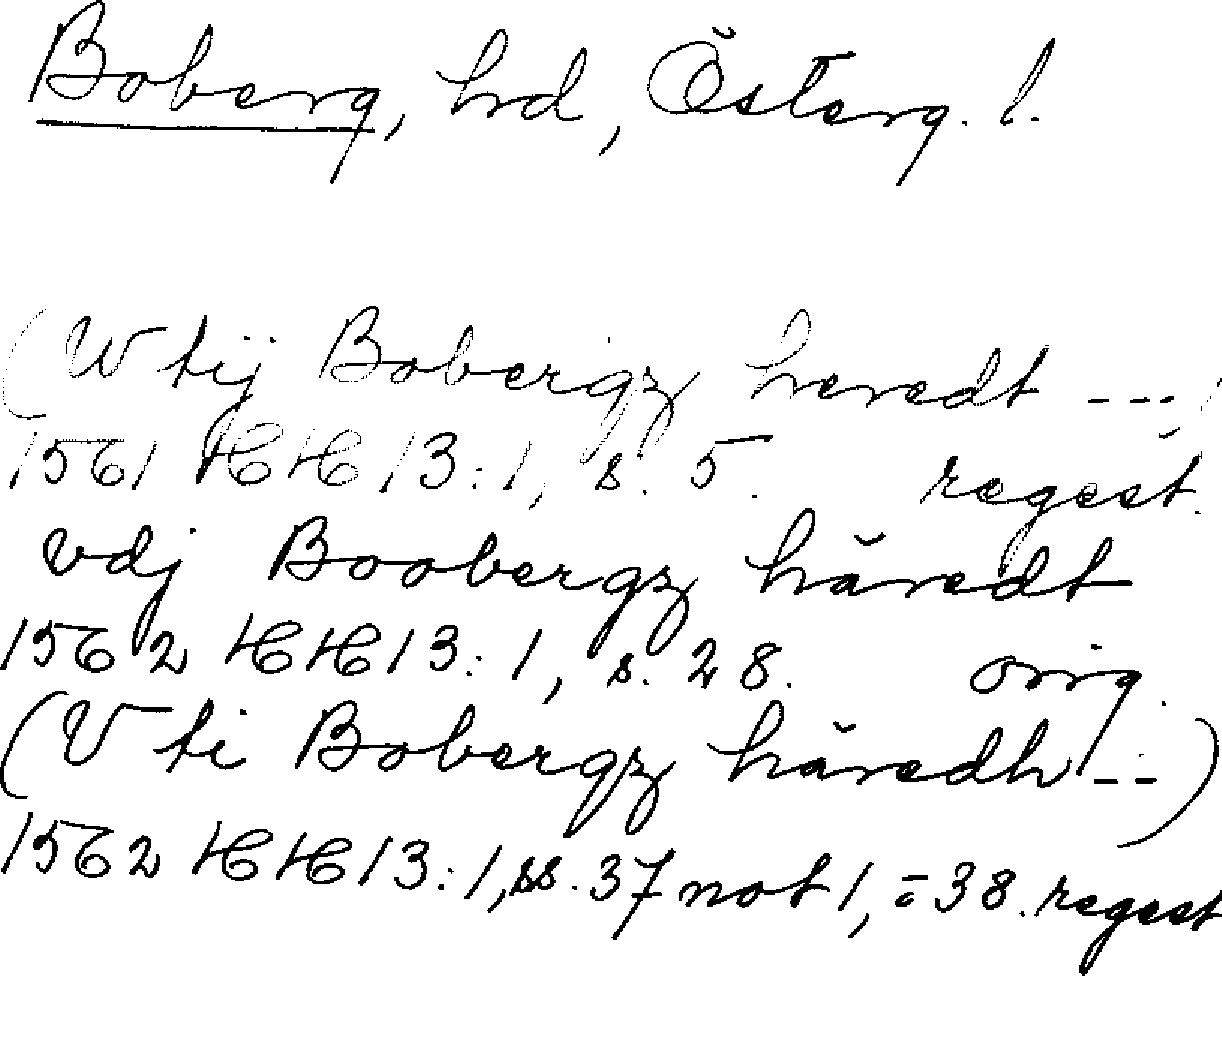 Boberg, hd, Österg. l.
(W tij Bobergz heredt ---)
1561 HH 13:1, s. 5. regest.
vdj Boobergz häredt
1562 HH 13:1, s. 28. orig.
(V ti Bobergz häredh ---)
1562 HH 13:1, ss. 37 not 1, = 38. regest